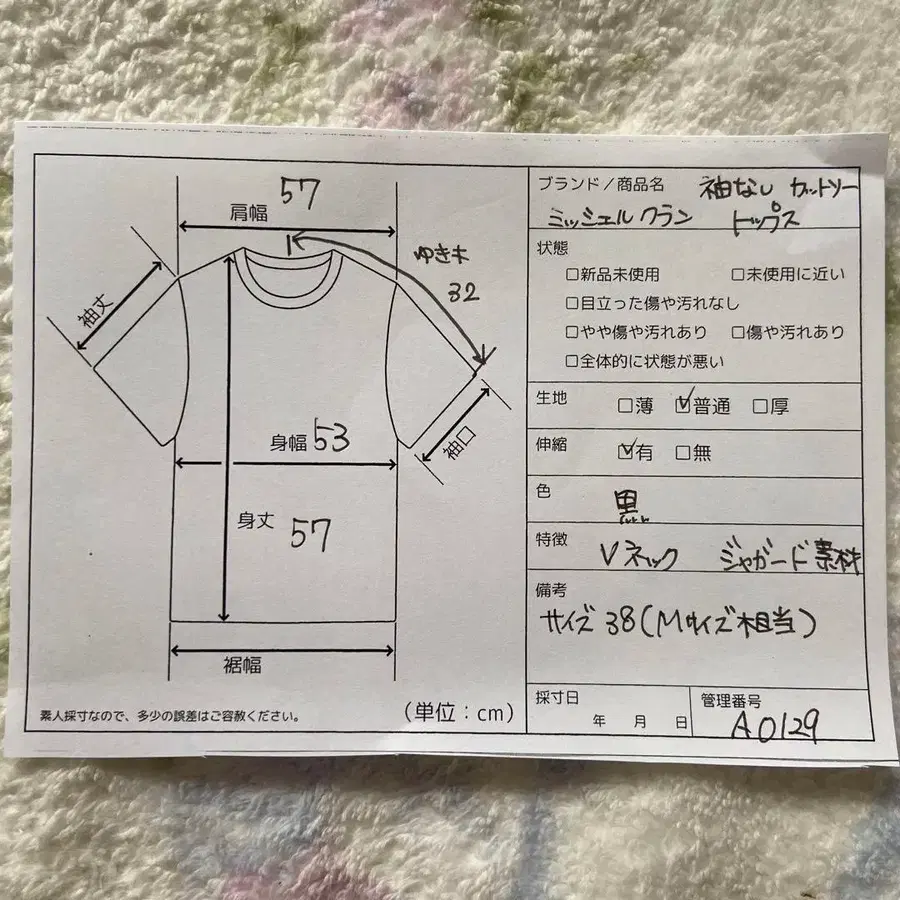 57
肩幅
ゆき丈
32
袖丈
身幅 53
袖口
身丈 57
裾幅
素人採寸なので、多少の誤差はご容赦ください。
(単位:cm)
ブランド/商品名 袖なし カットソー
ミッシェル クラン トップス
状態
□新品未使用 □未使用に近い
□目立った傷や汚れなし
□やや傷や汚れあり □傷や汚れあり
□全体的に状態が悪い
生地 □薄 ☑普通 □厚
伸縮 ☑有 □無
色 黒
特徴 Vネック ジャガード素材
備考
サイズ 38(Mサイズ相当)
採寸日
年 月 日
管理番号
A0129